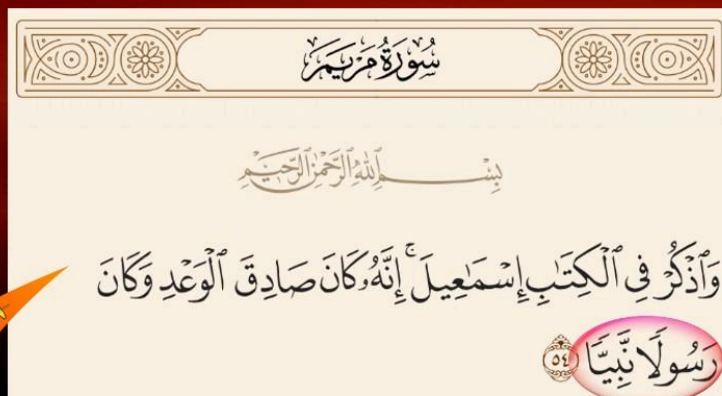 سُورَةُ مَرْيَمَ
بِسْمِ ٱللَّهِ ٱلرَّحْمَٰنِ ٱلرَّحِيمِ
وَٱذْكُرْ فِى ٱلْكِتَٰبِ إِسْمَٰعِيلَ ۚ إِنَّهُۥ كَانَ صَادِقَ ٱلْوَعْدِ وَكَانَ
رَسُولًا نَّبِيًّا ٥٤